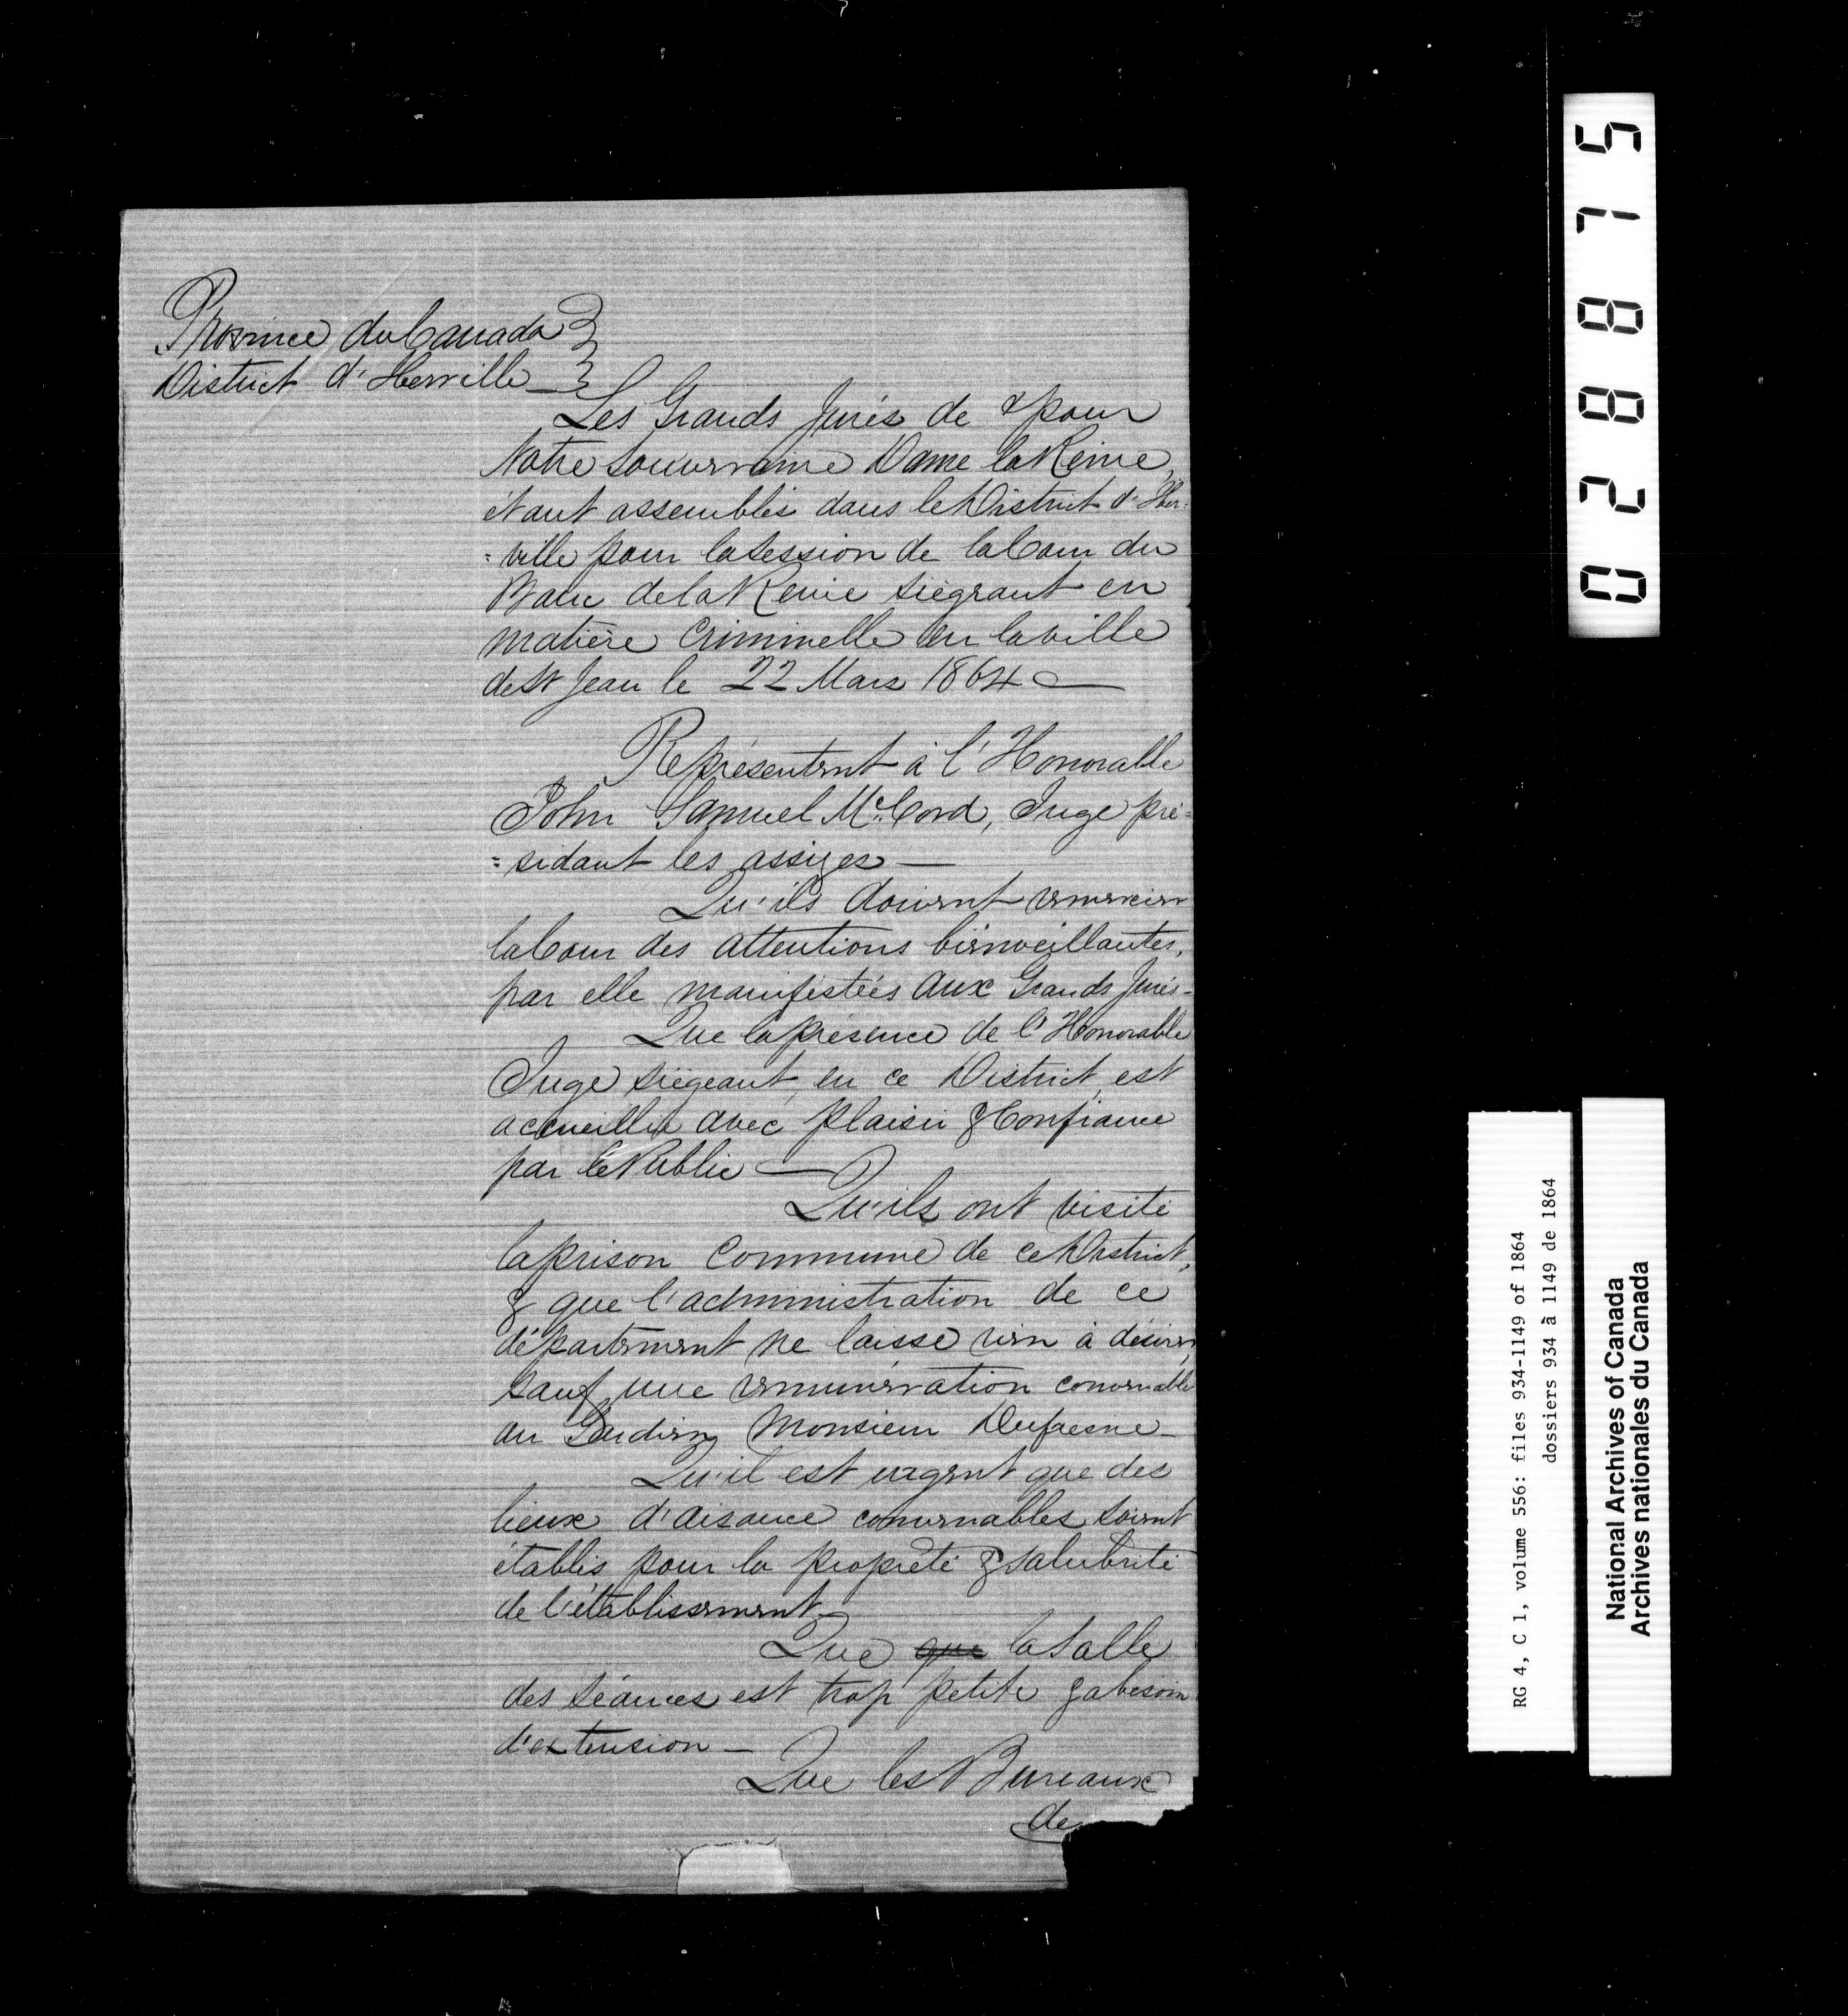 Province du Canada
District d'Iberville
Les Grands Jurés de & pour
Notre Souverraine Dame la Reine,
étant assemblés dans le District d'Iber=
=ville pour la Session de la Cour du
Banc de la Reine siégeant en
matière Criminelle en la ville
de St Jean le 22 Mars 1864
Représentent à l'Honorable
John Samuel McCord, Juge pré=
=sidant les assizes —
Qu'ils doivent remercier
la Cour des attentions bienveillantes,
par elle manifestées aux Grands Jurés -
Que la présence de l'Honorable
Juge siégeant, en ce District, est
accueillie avec plaisir & Confiance
par le Public —
Qu'ils ont visité
la prison Commune de ce District,
& que l'administration de ce
département ne laisse rien à désirer,
sauf une rémunération convenable
au Gardien, Monsieur Dufresne -
Qu'il est urgent que des
lieux d'aisance convenables soient
établis pour la propreté & salubrité
de l'établissement -
Que que la Salle
des séances est trop petite & a besoin
d'extension -
Que les Bureaux
de
028875
RG 4, C 1, volume 556: files 934-1149 of 1864
dossiers 934 à 1149 de 1864
National Archives of Canada
Archives nationales du Canada